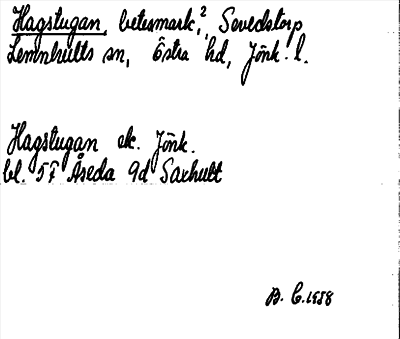 Hagstugan, betesmark,² Sevedstorp
Lemnhults sn, Östra hd, Jönk. l.
Hagstugan ek. Jönk.
bl. 5F Åseda 9d Saxhult
B. C. 1958